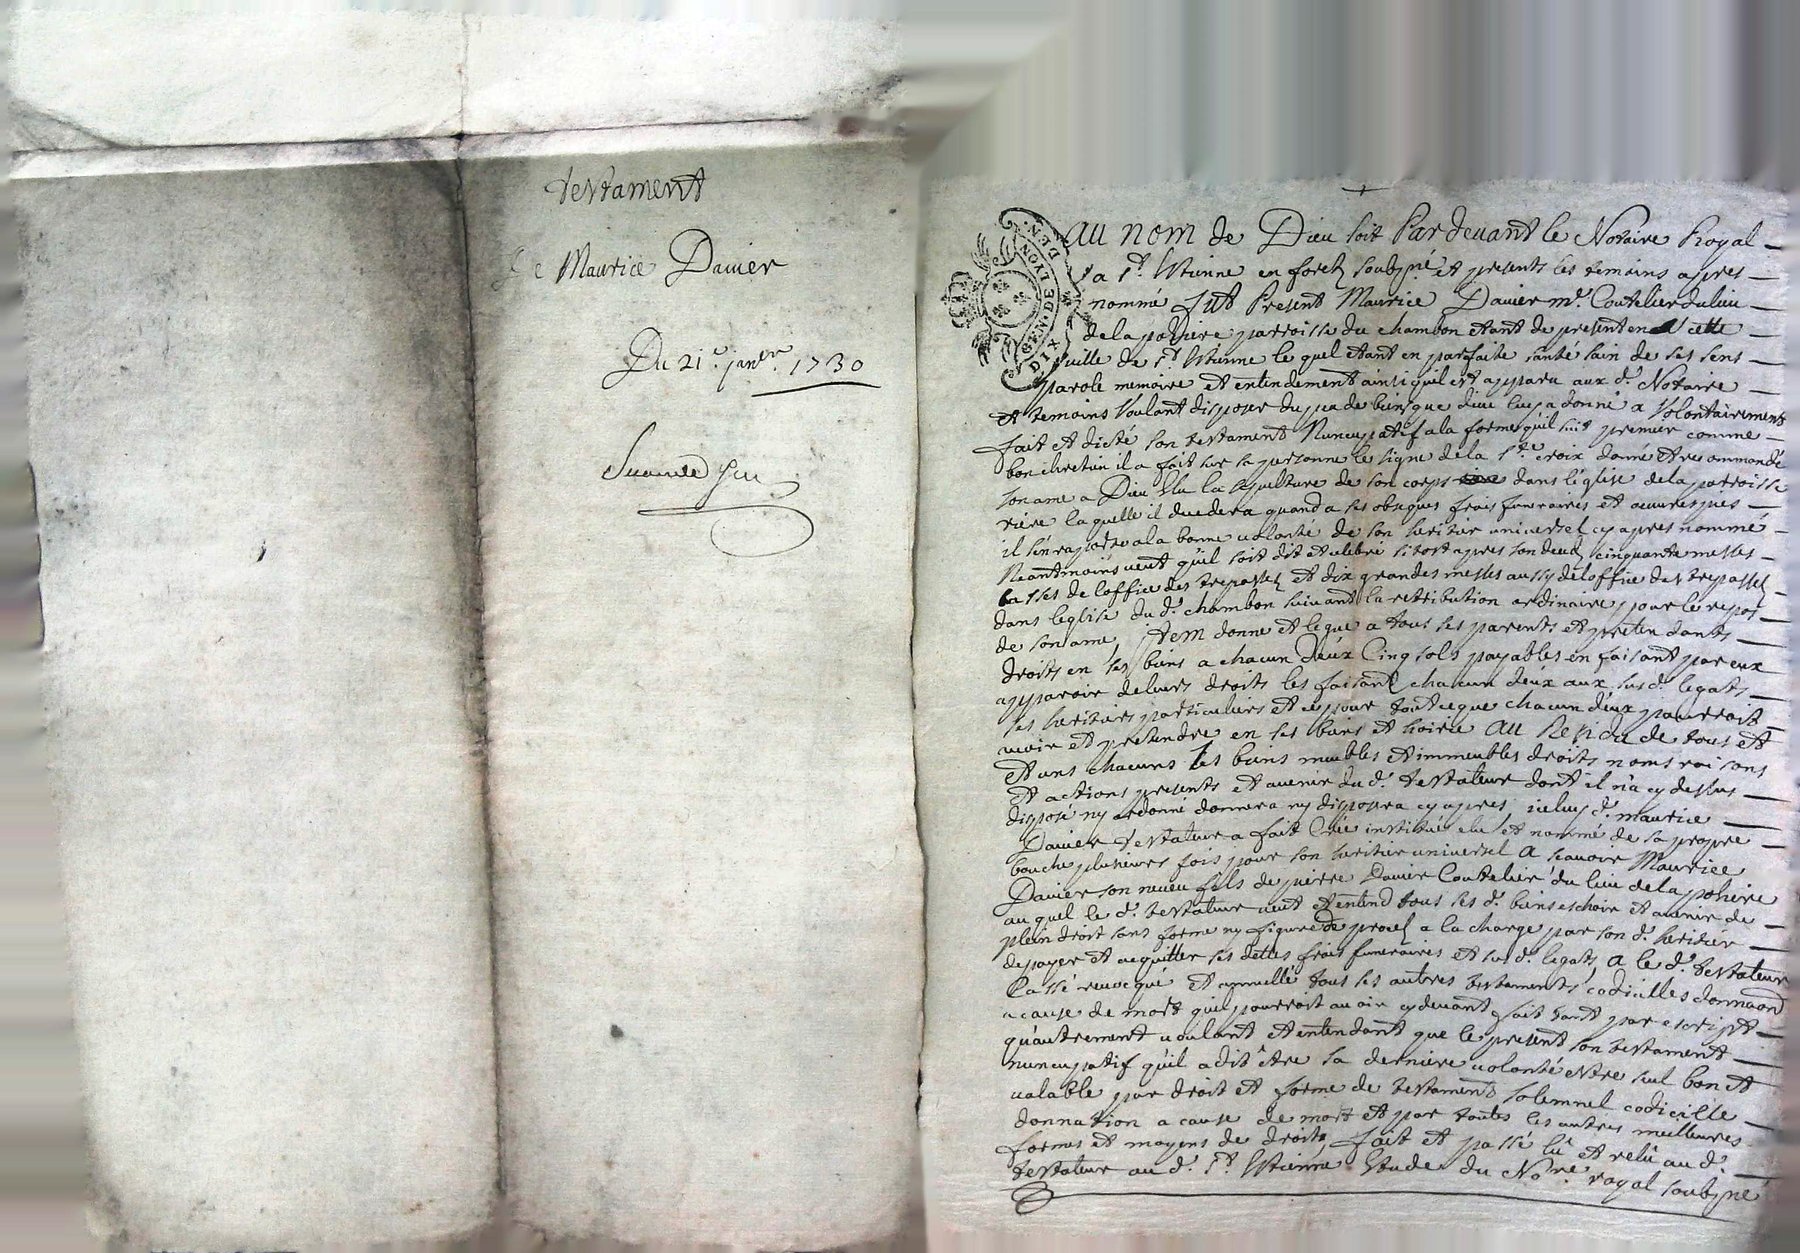 testament
de Maurice Davier
Du 21e. janer. 1730
GEN. DE LYON
DIX DEN.
au nom de Dieu soit Par devant le Notaire Royal
a st. Estienne en forez soubzné et presents les temoins apres
nommé fut Present Maurice Davier mr. Coutelier du lieu
de la poliere parroisse du chambon etant de present en cette
ville de st. Estienne le quel etant en parfaite santé sain de ses sens
parole memoire et entendement ainsi quil est apparu aux d. Notaire
et temoins Voulant disposer du peu de biens que dieu luy a donné a Volontairement
fait et dicté son testament Nuncupatif a la forme quil suit premier comme
bon chretien il a fait sur sa personne le signe de la ste. croix donné et recommandé
son ame a Dieu Elu la sepulture de son corps dans l'église de la parroisse
riere la quelle il decedera quand a ses obseques frais funeraires et oeuvres pies
il s'en raporte a la bonne volonté de son heritier universel cy apres nommé
Neantmoins veut qu'il soit dit et celebré sitost apres son decez cinquante messes
basses de l'office des trepassez et dix grandes messes aussy de l'office des trepassez
dans l'eglise du d. chambon suivant la retribution ordinaire pour le repos
de son ame, Item donne et legue a tous ses parents et pretendants
droits en ses biens a chacun d'eux Cinq sols payables en faisant par eux
apparoir de leurs droits les faisant chacun d'eux aux susd. legats
ses heritiers particuliers et ce pour tout ce que chacun d'eux pourroit
avoir et pretendre en ses biens et hoirie au Residu de tous et
et uns chacuns les biens meubles et immeubles droits noms raisons
et actions presents et avenir du d. testateur dont il n'a cy dessus
disposé ny ordonné donnera ny disposera cy apres iceluy d. maurice
Davier testateur a fait Crée institué elu et nommé de sa propre
bouche plusieurs fois pour son heritier universel A scavoir Maurice
Davier son neveu fils de pierre Davier Coutelier du lieu de la poliere
au quel le d. testateur veut et entend tous ses d. biens eschoir et avenir de
plein droit sans forme ny figure de procez a la charge par son d. heritier
de payer et acquitter ses dettes frais funeraires et susd. legats, A le d. testateur
Cassé revocqué et annullé tous ses autres testaments, codicilles donnaõns
a cause de mort quil pourroit avoir cy devant fait tant par escript
qu'autrement voulant et entendant que le present son testament
nuncupatif qu'il a dit être sa derniere volonté estre seul bon et
valable par droit et forme de testament solemnel codicille
donnation a cause de mort et par toutes les autres meilleures
formes et moyens de droits, fait et passé lû et relû au d.
testateur au d. st. Estienne Etude du Nore. royal soubzné